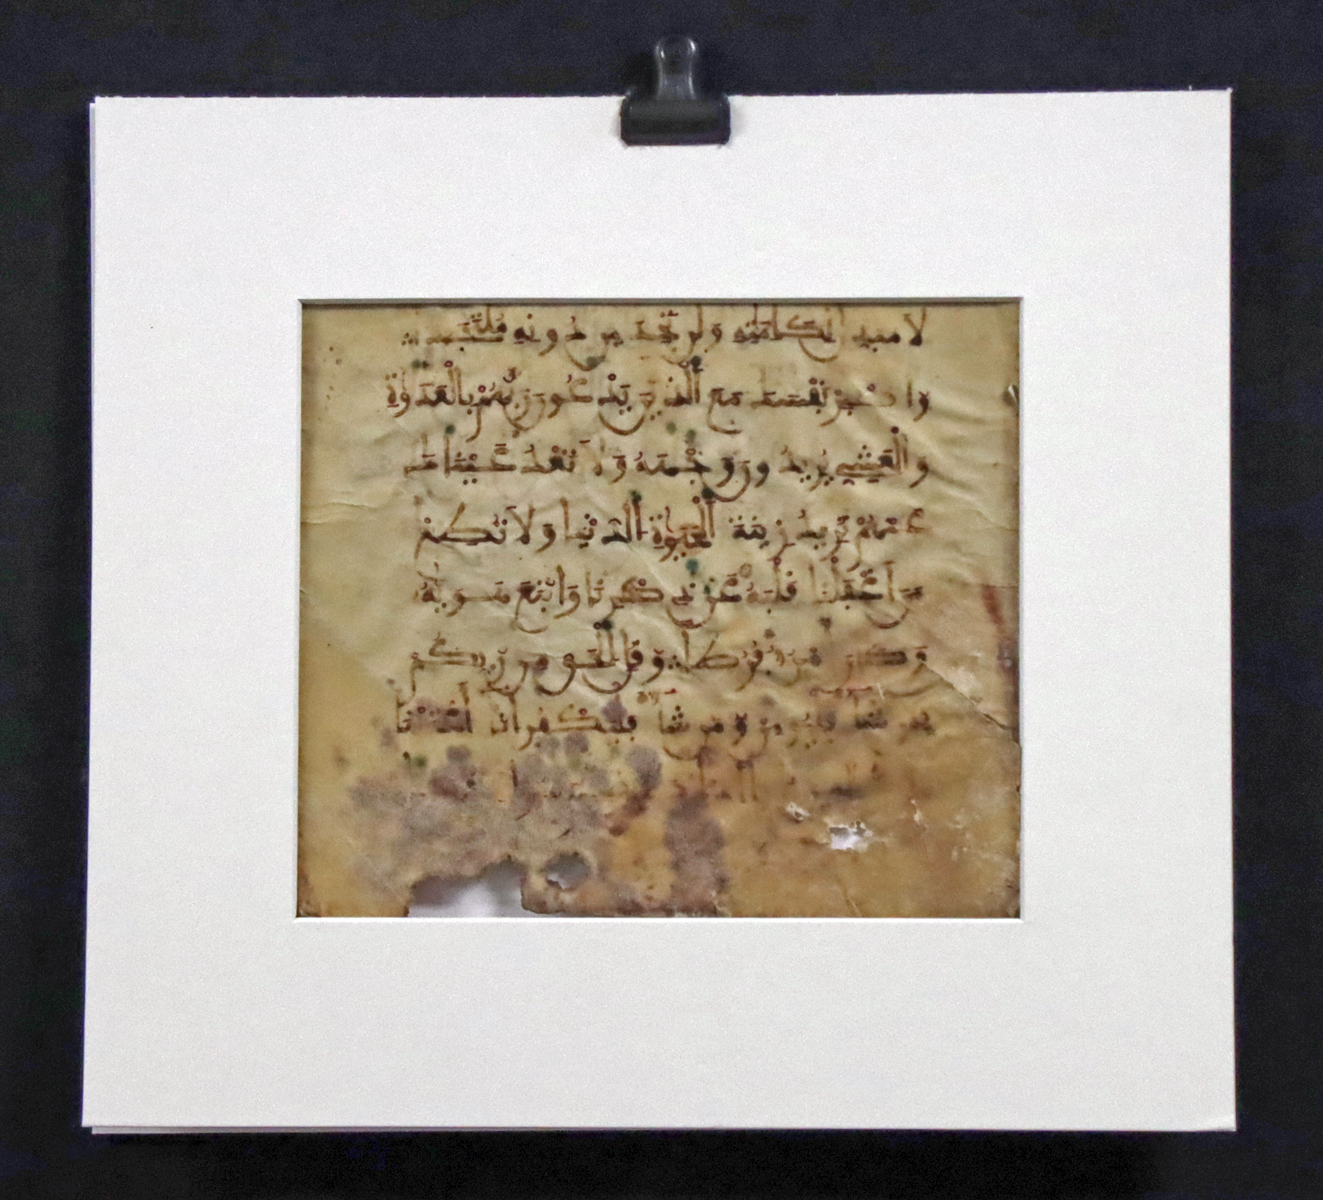 لا مبدل لكلمته ولن تجد من دونه ملتحدا
واصبر نفسك مع الذين يدعون ربهم بالغدوة
والعشي يريدون وجهه ولا تعد عينك
عنهم تريد زينة الحيوة الدنيا ولا تطع
من اغفلنا قلبه عن ذكرنا واتبع هويه
وكان امره فرطا وقل الحق من ربكم
فمن شا فليومن ومن شا فليكفر انا اعتدنا